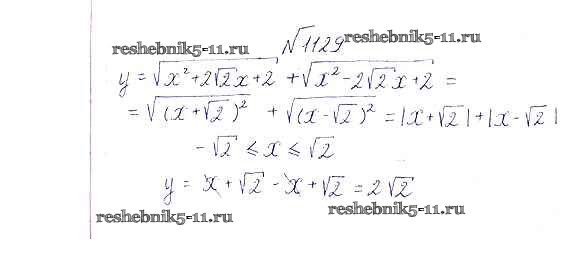 №1129
reshebnik5-11.ru reshebnik5-11.ru
y = √(x² + 2√2x + 2) + √(x² - 2√2x + 2) =
= √((x + √2)²) + √((x - √2)²) = |x + √2| + |x - √2|
- √2 ≤ x ≤ √2
y = x + √2 - x + √2 = 2√2
reshebnik5-11.ru reshebnik5-11.ru